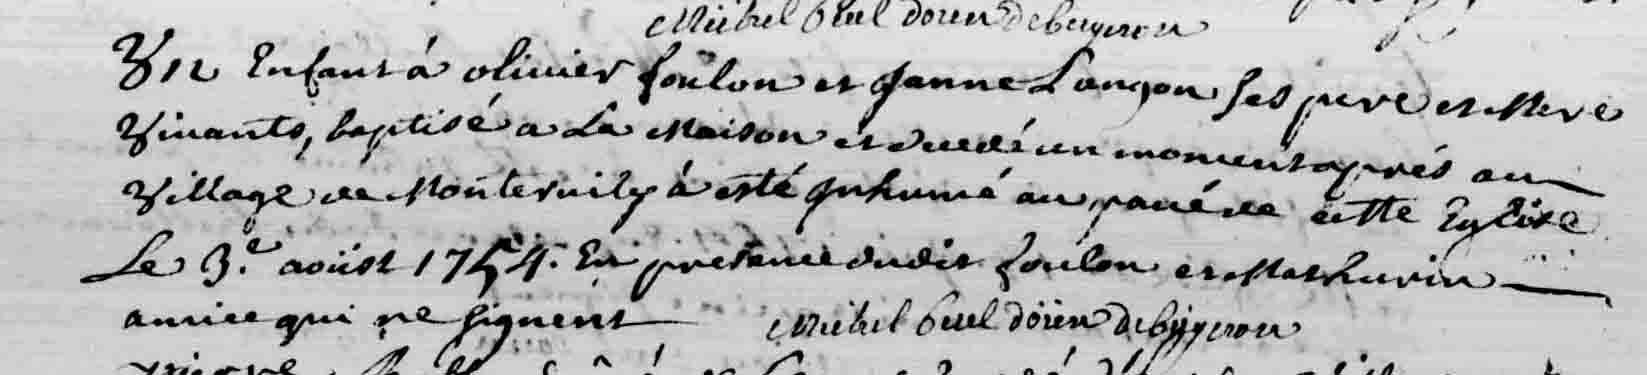 Michel Buel doien de bugueron
Un Enfant á olivier foulon et Janne Langon ses pere et Mere
Vivants, baptisé a La Maison et decedé un moment aprés au
Village de Montervily á esté Inhumé au pavé de cette Eglise
Le 3.e aoüst 1754. En presence dudit foulon et Mathurin
amice qui ne signent
Michel Buel doïen